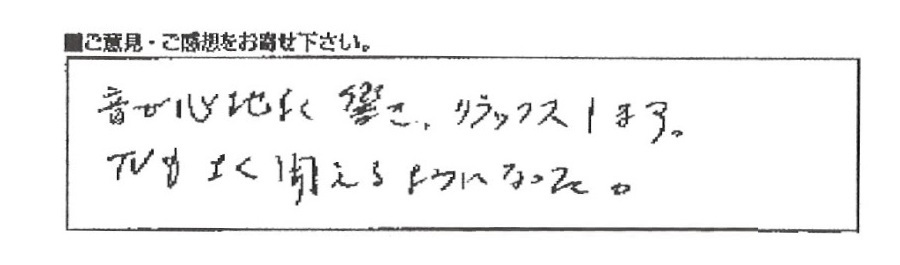 ■ご意見・ご感想をお寄せ下さい。
音が心地よく響き、リラックスします。
TVもよく聞えるようになった。